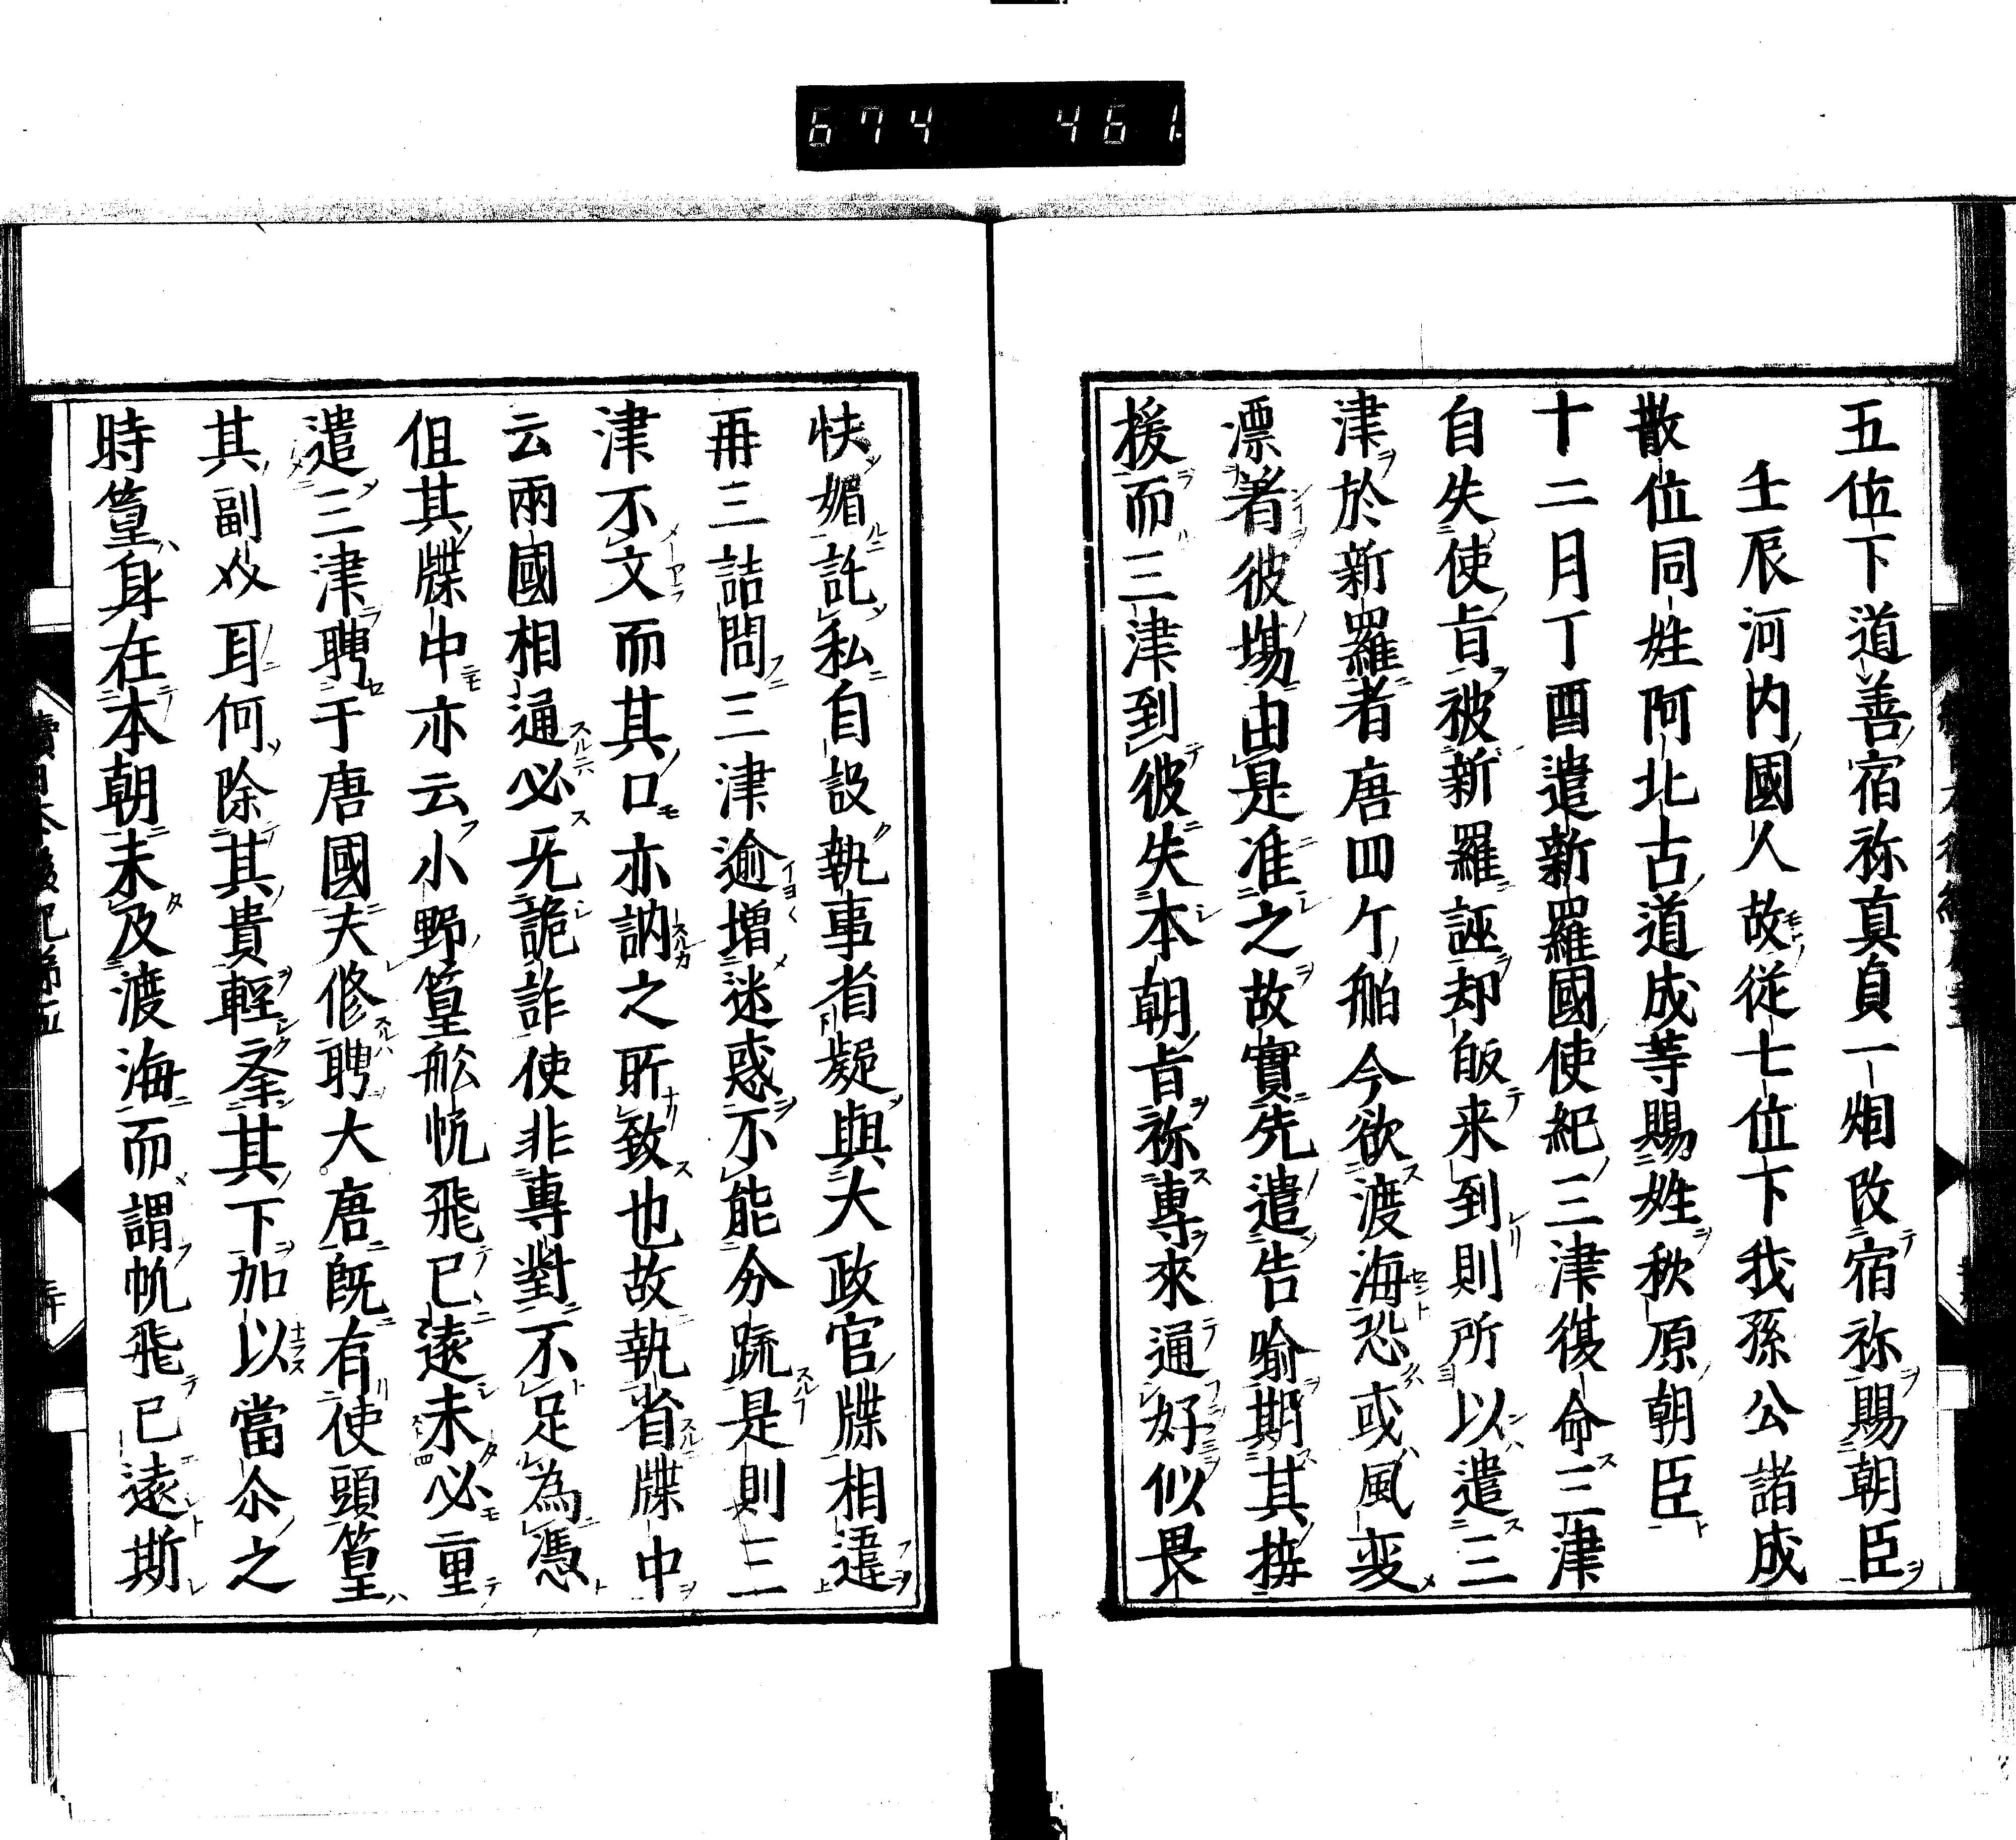 674 461
五位下道善宿祢真貞一烟改宿祢賜朝臣
壬辰河内國人故從七位下我孫公諸成
散位同姓阿北古道成等賜姓秋原朝臣
十二月丁酉遣新羅國使紀三津復命三津
自失使旨被新羅誣却皈来到則所以遣三
津於新羅者唐四ケ舶今欲渡海恐或風変
漂着彼堨由是准之故實先遣告喻期其接
援而三津到彼失本朝旨称專來通好似畏
怏媚託私自設執事省疑與大政官牒相違
再三詰問三津逾增迷惑不能分疏是則三
津不文而其口亦訥之所致也故執省牒中
云兩國相通必无詭詐使非專對不足為憑
但其牒中亦云小野篁舩帆飛已遠未必重
遣三津聘于唐國夫修聘大唐既有使頭篁
其副介耳何除其貴輕舉其下加以當尒之
時篁身在本朝未及渡海而謂帆飛已遠斯